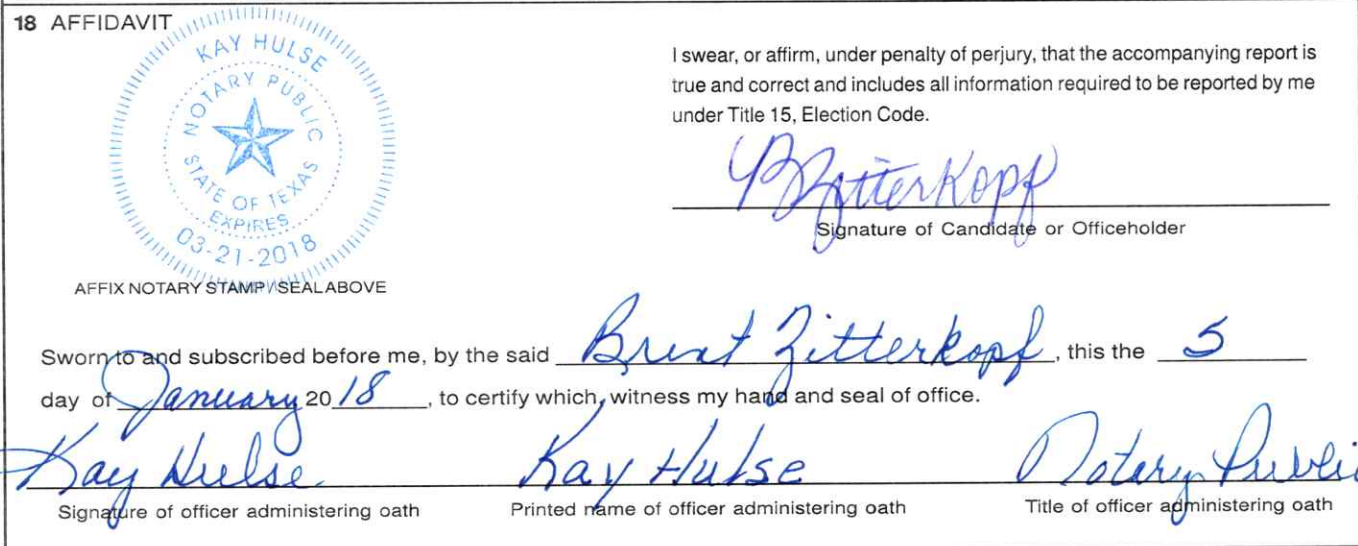 18 AFFIDAVIT
KAY HULSE
NOTARY PUBLIC
STATE OF TEXAS
EXPIRES
03-21-2018
AFFIX NOTARY STAMP / SEAL ABOVE
I swear, or affirm, under penalty of perjury, that the accompanying report is
true and correct and includes all information required to be reported by me
under Title 15, Election Code.
BZitterkopf
Signature of Candidate or Officeholder
Sworn to and subscribed before me, by the said Brent Zitterkopf, this the 5
day of January 20 18, to certify which, witness my hand and seal of office.
Kay Hulse Kay Hulse Notary Public
Signature of officer administering oath Printed name of officer administering oath Title of officer administering oath